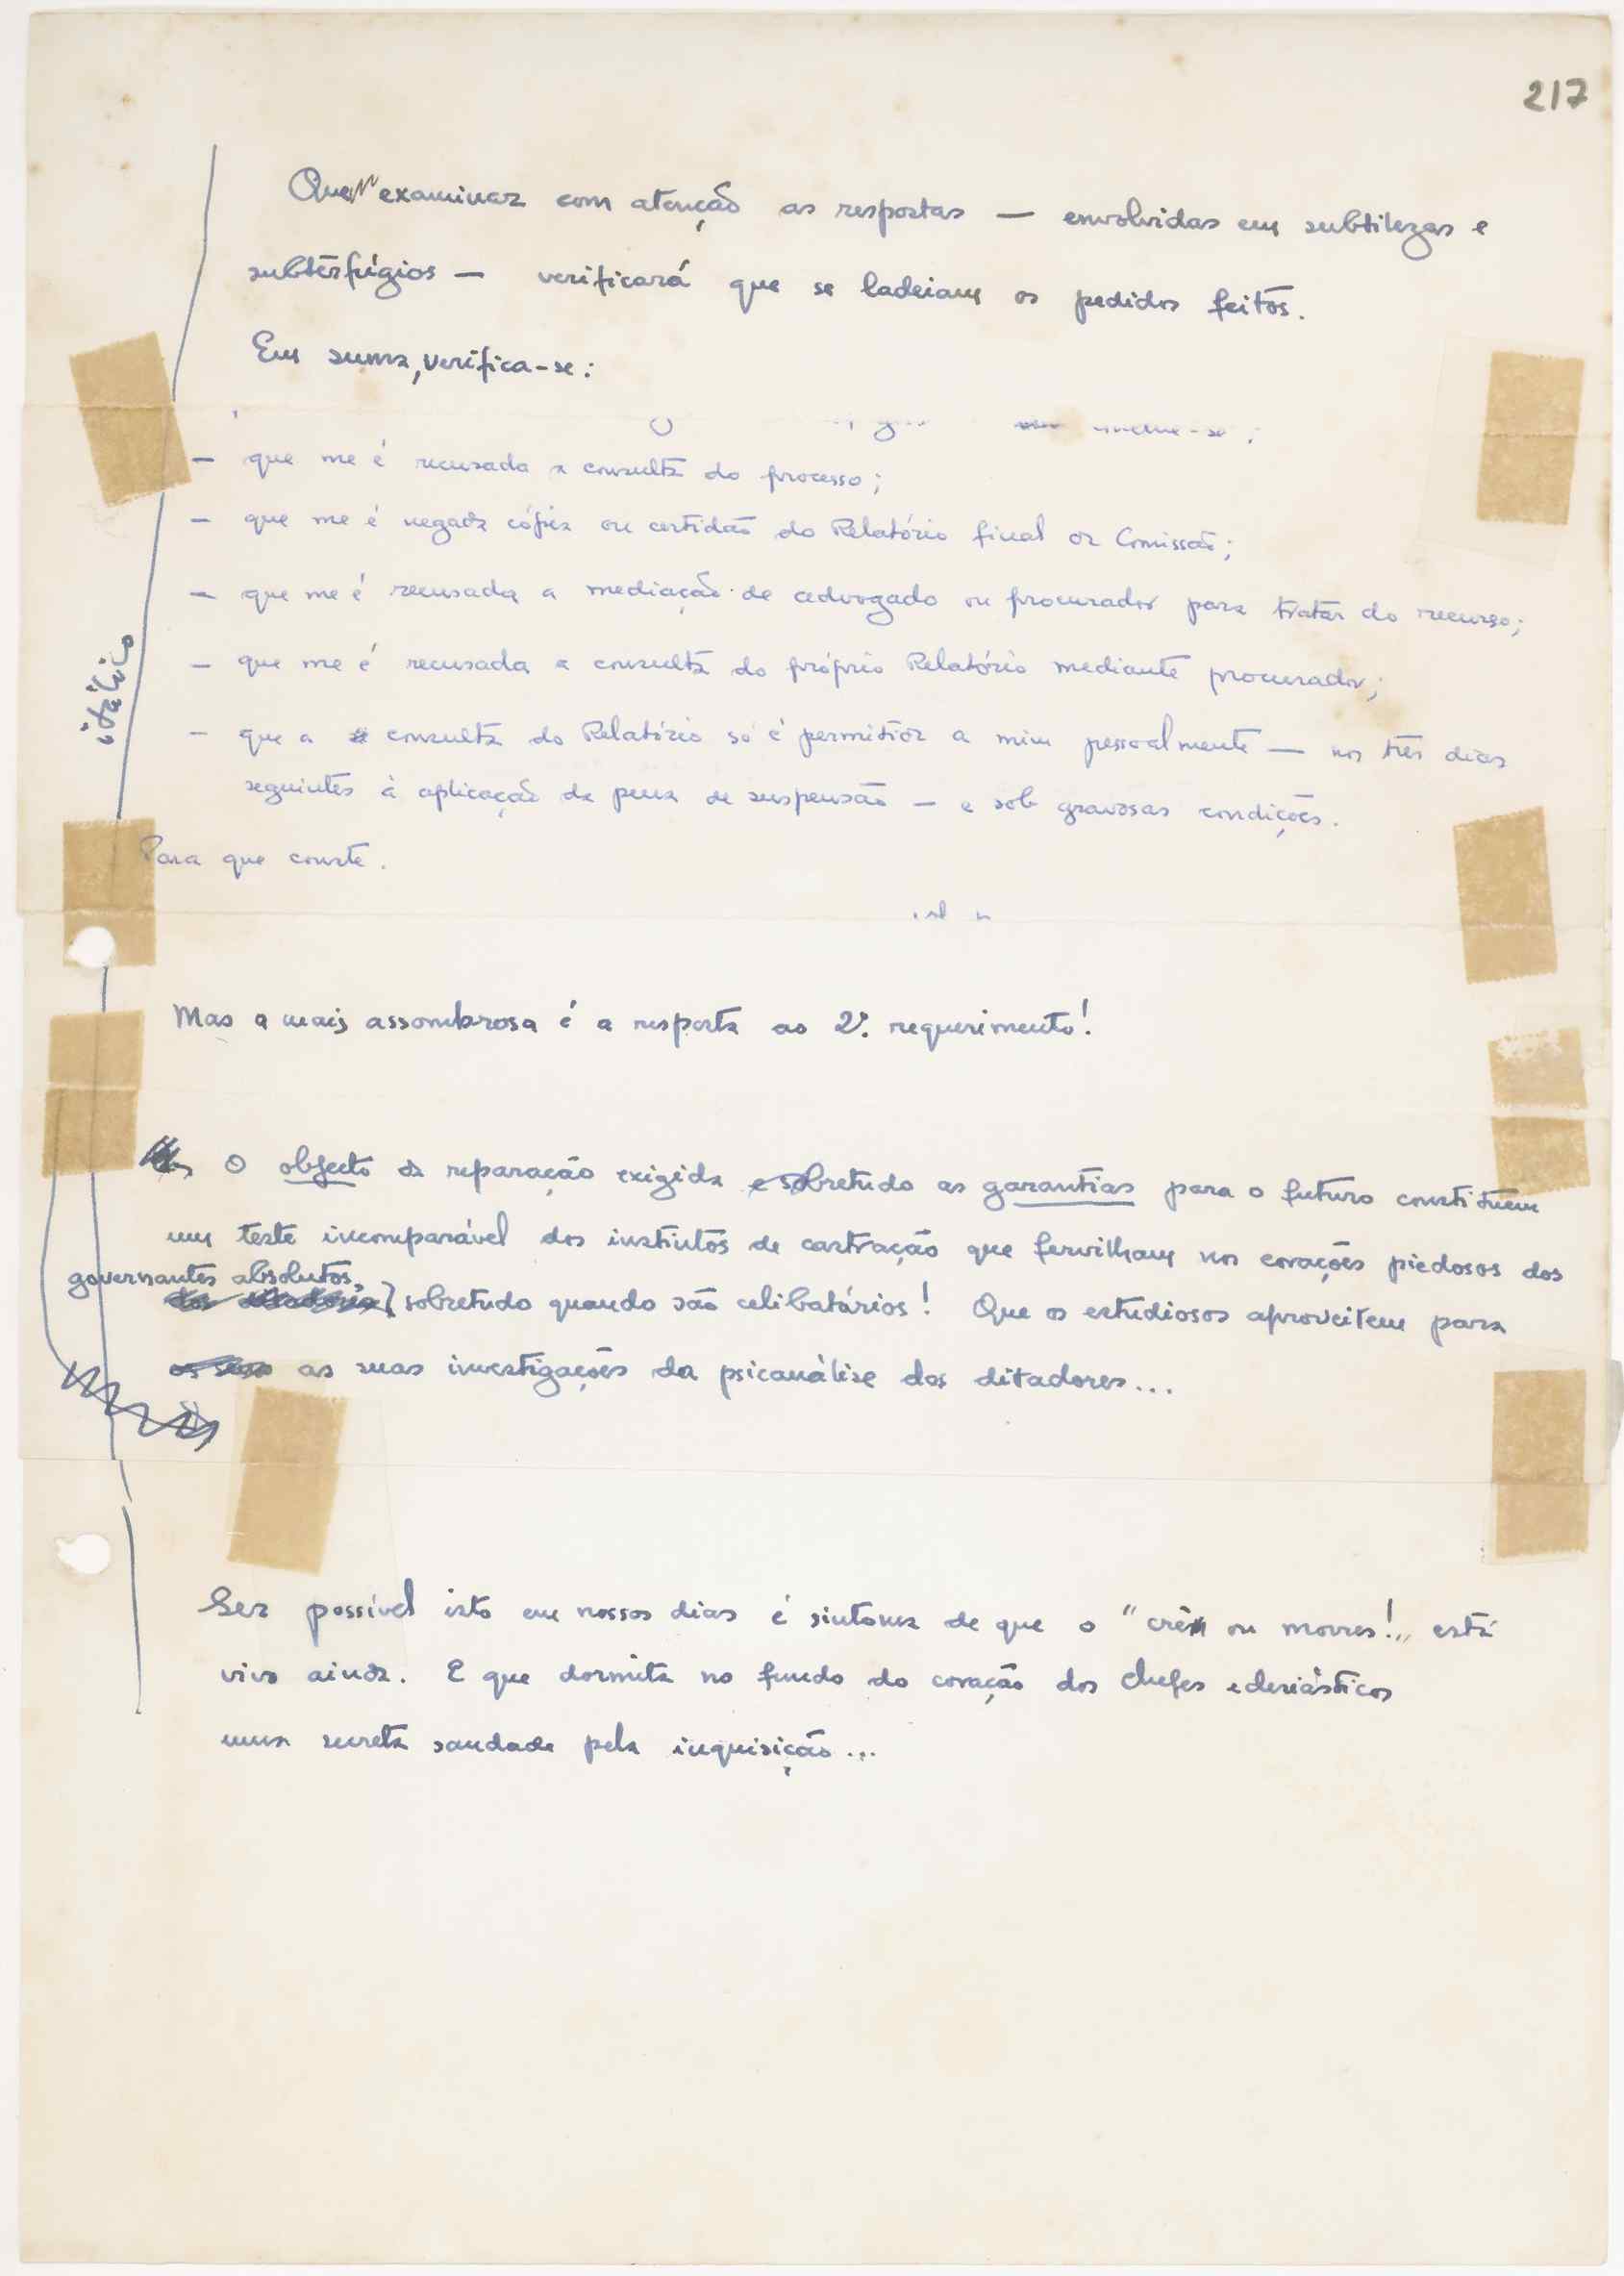 217
Quem examinar com atenção as respostas — envolvidas em subtilezas e
subterfúgios — verificará que se ladeiam os pedidos feitos.
Em suma, verifica-se:
— que me é recusada a consulta do processo;
— que me é negada cópia ou certidão do Relatório final da Comissão;
— que me é recusada a mediação de advogado ou procurador para tratar do recurso;
— que me é recusada a consulta do próprio Relatório mediante procurador;
itálico
— que a consulta do Relatório só é permitida a mim pessoalmente — nos três dias
seguintes à aplicação da pena de suspensão — e sob gravosas condições.
Para que conste.
Mas a mais assombrosa é a resposta ao 2º. requerimento!
O objecto da reparação exigida e sobretudo as garantias para o futuro constituem
um teste incomparável dos instintos de castração que fervilham nos corações piedosos dos
governantes absolutos,
sobretudo quando são celibatários! Que os estudiosos aproveitem para
os seus as suas investigações da psicanálise dos ditadores...
Ser possível isto em nossos dias é sintoma de que o "crês ou morres!" está
vivo ainda. E que dormita no fundo do coração dos chefes eclesiásticos
uma secreta saudade pela inquisição...